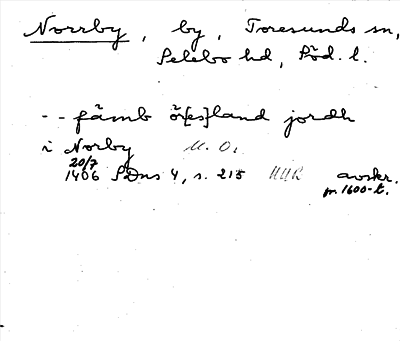 Norrby, by, Toresunds sn,
Selebo hd, Söd. l.
- - fämb ö[es]land jordh
i Norby M. O.
20/7
1406 SDns 4, s. 215 avskr.
fr. 1600-t.